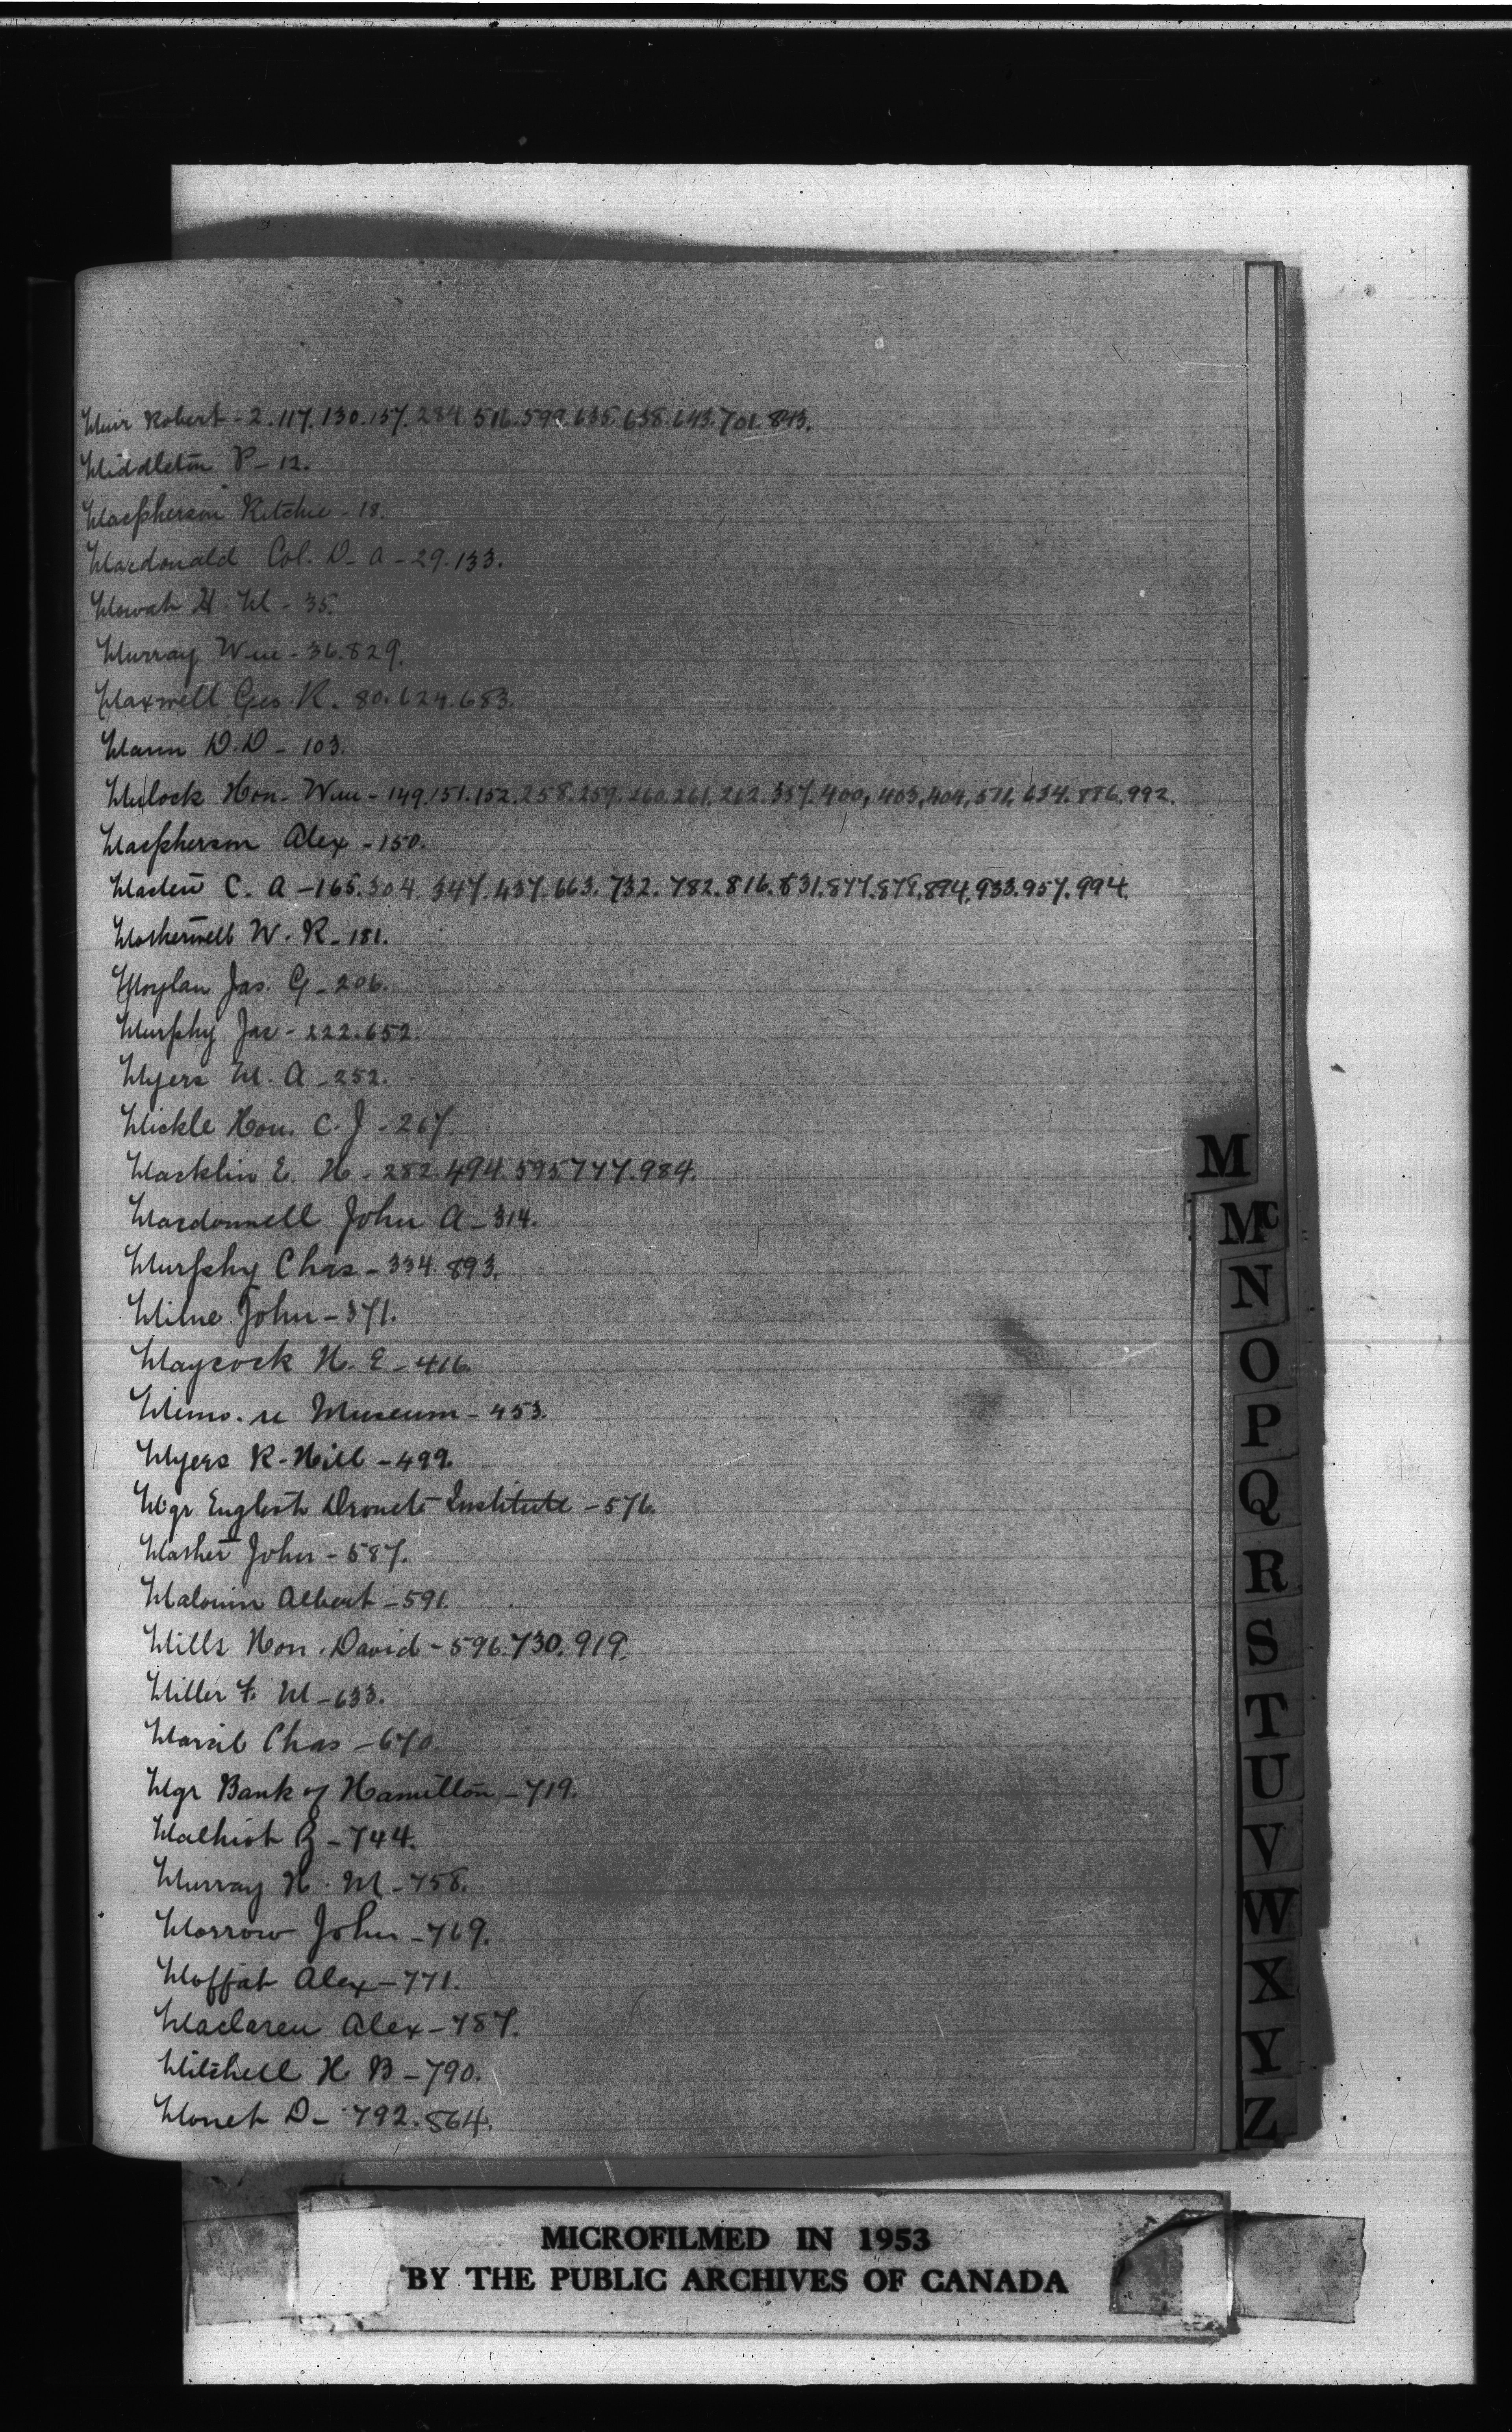 Muir Robert - 2. 117. 130. 157. 284. 516. 599. 635. 638. 643. 701. 843.
Middleton P - 12.
Macpherson Ritchie - 18.
Macdonald Col. D. A - 29. 133.
Mowat H. M - 35.
Murray Wm - 36. 829.
Maxwell Geo. R. 80. 624. 683.
Mann D. D - 103.
Mulock Hon. Wm - 149. 151. 152. 258. 259. 260. 261. 262. 337. 400, 403, 404, 571, 634. 886. 992.
Macpherson Alex - 150.
C. A - 165. 304. 347. 437. 663. 732. 782. 816. 831. 877. 879. 894. 933. 957. 994.
Motherwell W. R - 181.
Moylan Jas. G - 206.
Murphy Jas - 222. 652.
Myers M. A - 252.
Mickle Hon. C. J - 267.
Macklin E. H - 282. 494. 595 777. 984.
Macdonnell John A - 314.
Murphy Chas - 334. 893.
Milne John - 371.
Maycock H. E - 416.
Memo. re Museum - 453.
Myers R. Hill - 499
Mgr English Institute - 576.
Mather John - 587.
Malouin Albert - 591.
Mills Hon. David - 596. 730. 919.
Miller F. M - 633.
Marcil Chas - 670.
Mgr Bank of Hamilton - 719.
Malhiot - 744.
Murray H. M - 758.
Morrow John - 769.
Moffat Alex - 771.
Maclaren Alex - 787.
Mitchell H B - 790.
Monet D - 792. 864.
M
Mc
N
O
P
Q
R
S
T
U
V
W
X
Y
Z
MICROFILMED IN 1953
BY THE PUBLIC ARCHIVES OF CANADA